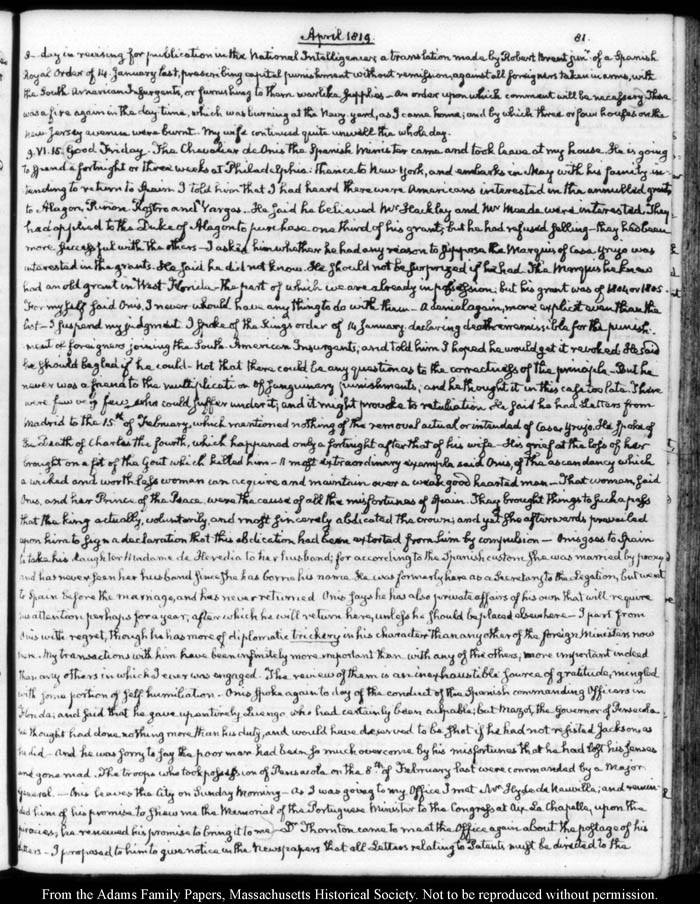 April 1819.
81.
day in revising for publication in the National Intelligencer a translation made by Robert Brent junr. of a Spanish
Royal Order of 14. January last, prescribing capital punishment without remission, against all foreigners taken in arms, with
the South American Insurgents, or furnishing to them warlike Supplies — an order upon which comment will be necessary. There
was a fire again in the day time, which was burning at the Navy yard, as I came home; and by which three or four houses on the
New Jersey avenue were burnt. My wife continued quite unwell the whole day.
9. VI. 15. Good Friday. The Chevalier de Onis the Spanish Minister came and took leave at my house. He is going
to spend a fortnight or three weeks at Philadelphia: thence to New York, and embarks in May with his family in-
tending to return to Spain. I told him that I had heard there were Americans interested in the annulled grants
to Alagon, Puñon Rostro and Vargas. He said he believed Mr Hackley and Mr Meade were interested. They
had applied to the Duke of Alagon to purchase one third of his grants; but he had refused selling — they had been
more successful with the others — I asked him whether he had any reason to suppose the Marquis of Casa Yrujo was
interested in the grants. He said he did not know. He should not be surprized if he had. The Marquis he knew
had an old grant in West Florida — the part of which we are already in possession; but his grant was of 1804 or 1805.
For myself said Onis, I never would have any thing to do with them — A denial again, more explicit even than the
last — I suspend my judgment. I spoke of the Kings order of 14 January declaring death irremissible for the punish-
ment of foreigners joining the South-American Insurgents; and told him I hoped he would get it revoked. He said
he should be glad if he could — Not that there could be any question as to the correctness of the principle — But he
never was a friend to the multiplication of sanguinary punishments; and he thought it in this case too late. There
were few very few, who could suffer under it; and it might provoke to retaliation. He said he had Letters from
Madrid to the 15th of February, which mentioned nothing of the removal actual or intended of Casa-Yrujo. He spoke of
the Death of Charles the fourth, which happened only a fortnight after that of his wife — His grief at the loss of her
brought on a fit of the Gout which killed him — A most extraordinary example said Onis, of the ascendancy which
a wicked and worthless woman can acquire and maintain over a weak good hearted man — That woman, said
Onis, and her Prince of the Peace, were the cause of all the misfortunes of Spain. They brought things to such a pass
that the King actually, voluntarily, and most sincerely abdicated the crown; and yet she afterwards prevailed
upon him to sign a declaration that this abdication had been extorted from him by compulsion — Onis goes to Spain
to take his daughter Madame de Heredia to her husband; for according to the Spanish custom she was married by proxy
and has never seen her husband since she has borne his name. He was formerly here as a Secretary to the Legation, but went
to Spain before the marriage, and has never returned. Onis says he has also private affairs of his own that will require
his attention perhaps for a year; after which he will return here, unless he should be placed elsewhere — I part from
Onis with regret, though he has more of diplomatic trickery in his character than any other of the foreign Ministers now
here. My transactions with him have been infinitely more important than with any of the others; more important indeed
than any others in which I ever was engaged. The review of them is an inexhaustible source of gratitude, mingled
with some portion of self humiliation. Onis spoke again to day of the conduct of the Spanish commanding Officers in
Florida; and said that he gave up entirely Luengo, who had certainly been culpable; but Mazot, the Governor of Pensacola
he thought had done nothing more than his duty, and would have deserved to be shot if he had not resisted Jackson, as
he did — And he was sorry to say the poor man had been so much overcome by his misfortunes that he had lost his senses
and gone mad. The troops who took possession of Pensacola on the 8th of February last were commanded by a Major
General. — Onis leaves the City on Sunday Morning — As I was going to my Office I met Mr Hyde de Neuville; and remin-
ded him of his promise to shew me the Memorial of the Portuguese Minister to the Congress at Aix La Chapelle, upon the
piracies; he renewed his promise to bring it to me — Dr Thornton came to me at the Office again about the postage of his
Letters — I proposed to him to give notice in the Newspapers that all Letters relating to Patents must be directed to the
From the Adams Family Papers, Massachusetts Historical Society. Not to be reproduced without permission.